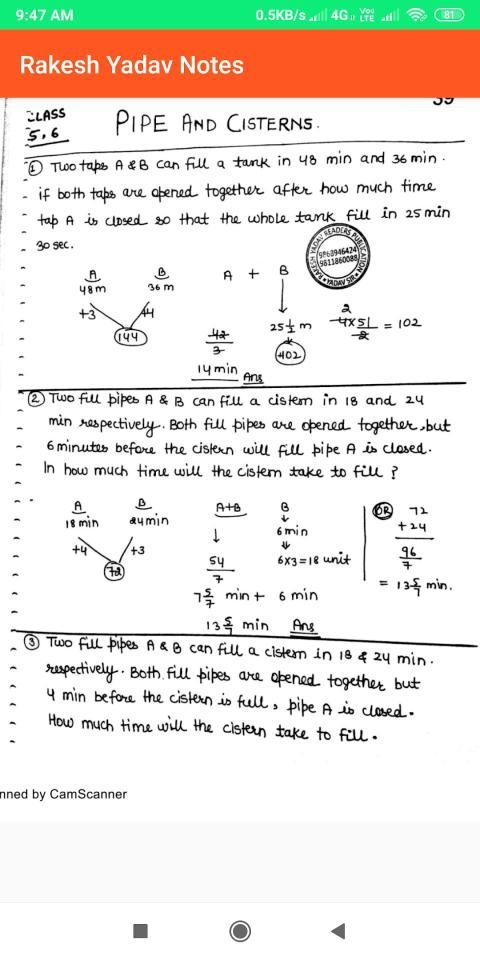 9:47 AM
0.5KB/s 4G Vo) LTE 81
Rakesh Yadav Notes
39
CLASS
5,6
PIPE AND CISTERNS.
① Two taps A & B can fill a tank in 48 min and 36 min.
if both taps are opened together after how much time
tap A is closed so that the whole tank fill in 25 min
30 sec.
RAKESH YADAV READERS PUBLICATION
9868946424
9811860088
YADAV SIR
A B A + B
48m 36m
+3 +4
144
25½ m
402
2
4x51 = 102
2
42
3
14 min Ans
② Two fill pipes A & B can fill a cistern in 18 and 24
min respectively. Both fill pipes are opened together, but
6 minutes before the cistern will fill pipe A is closed.
In how much time will the cistern take to fill ?
A B A+B B
18 min 24min 6min
+4 +3
72
54
7
6x3=18 unit
7 5/7 min + 6 min
13 5/7 min Ans
OR 72
+24
96
7
= 13 5/7 min.
③ Two fill pipes A & B can fill a cistern in 18 & 24 min.
respectively. Both fill pipes are opened together but
4 min before the cistern is full, pipe A is closed.
How much time will the cistern take to fill.
nned by CamScanner